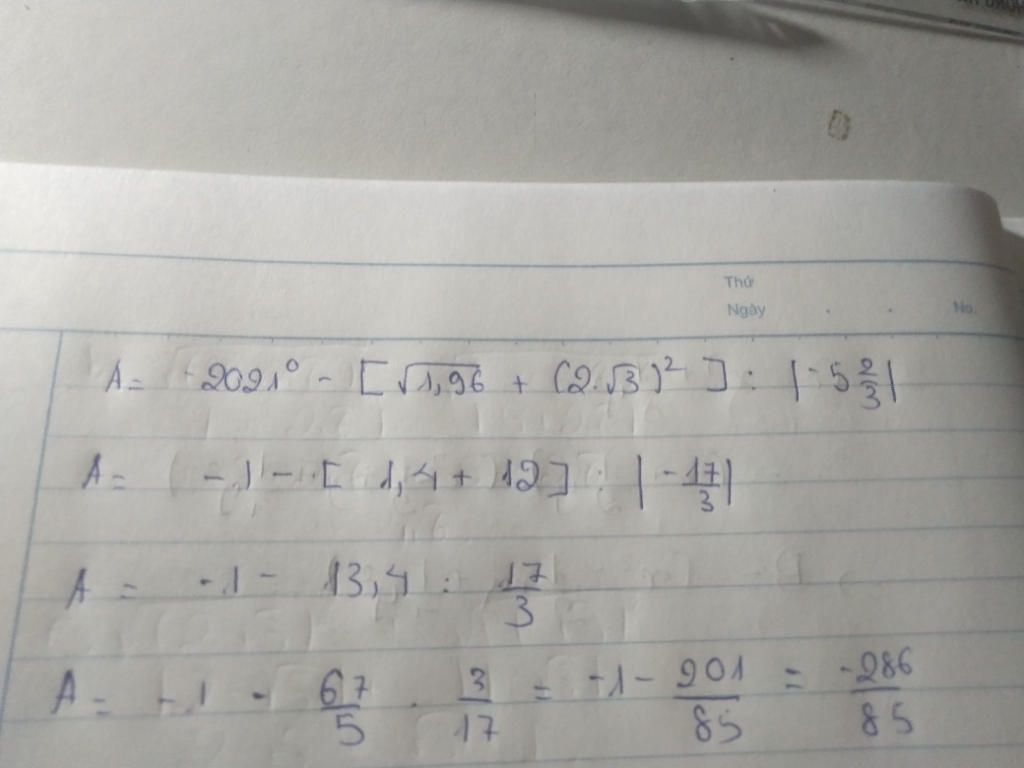 Thứ
Ngày . . No.
A = -2021⁰ - [√1,96 + (2.√3)²] : |-5 2/3|
A = -1 - [1,4 + 12] : |-17/3|
A = -1 - 13,4 : 17/3
A = -1 - 67/5 . 3/17 = -1 - 201/85 = -286/85